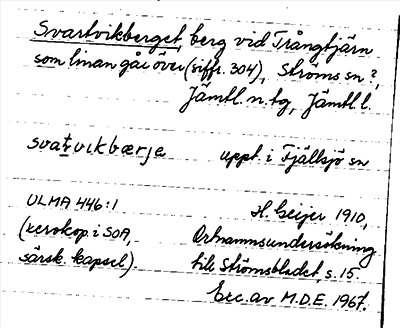 Svartvikberget, berg vid Trångtjärn
som linan går över (siffr. 304), Ströms sn?,
Jämtl. n. tg, Jämtl l.
svatvikbærje uppt. i Fjällsjö sn
ULMA 446:1 H. Geijer 1910,
(xerokop. i SOA, Ortnamnsundersökning
särsk. kapsel). till Strömsbladet, s. 15.
Exc. av M.D.E. 1967.